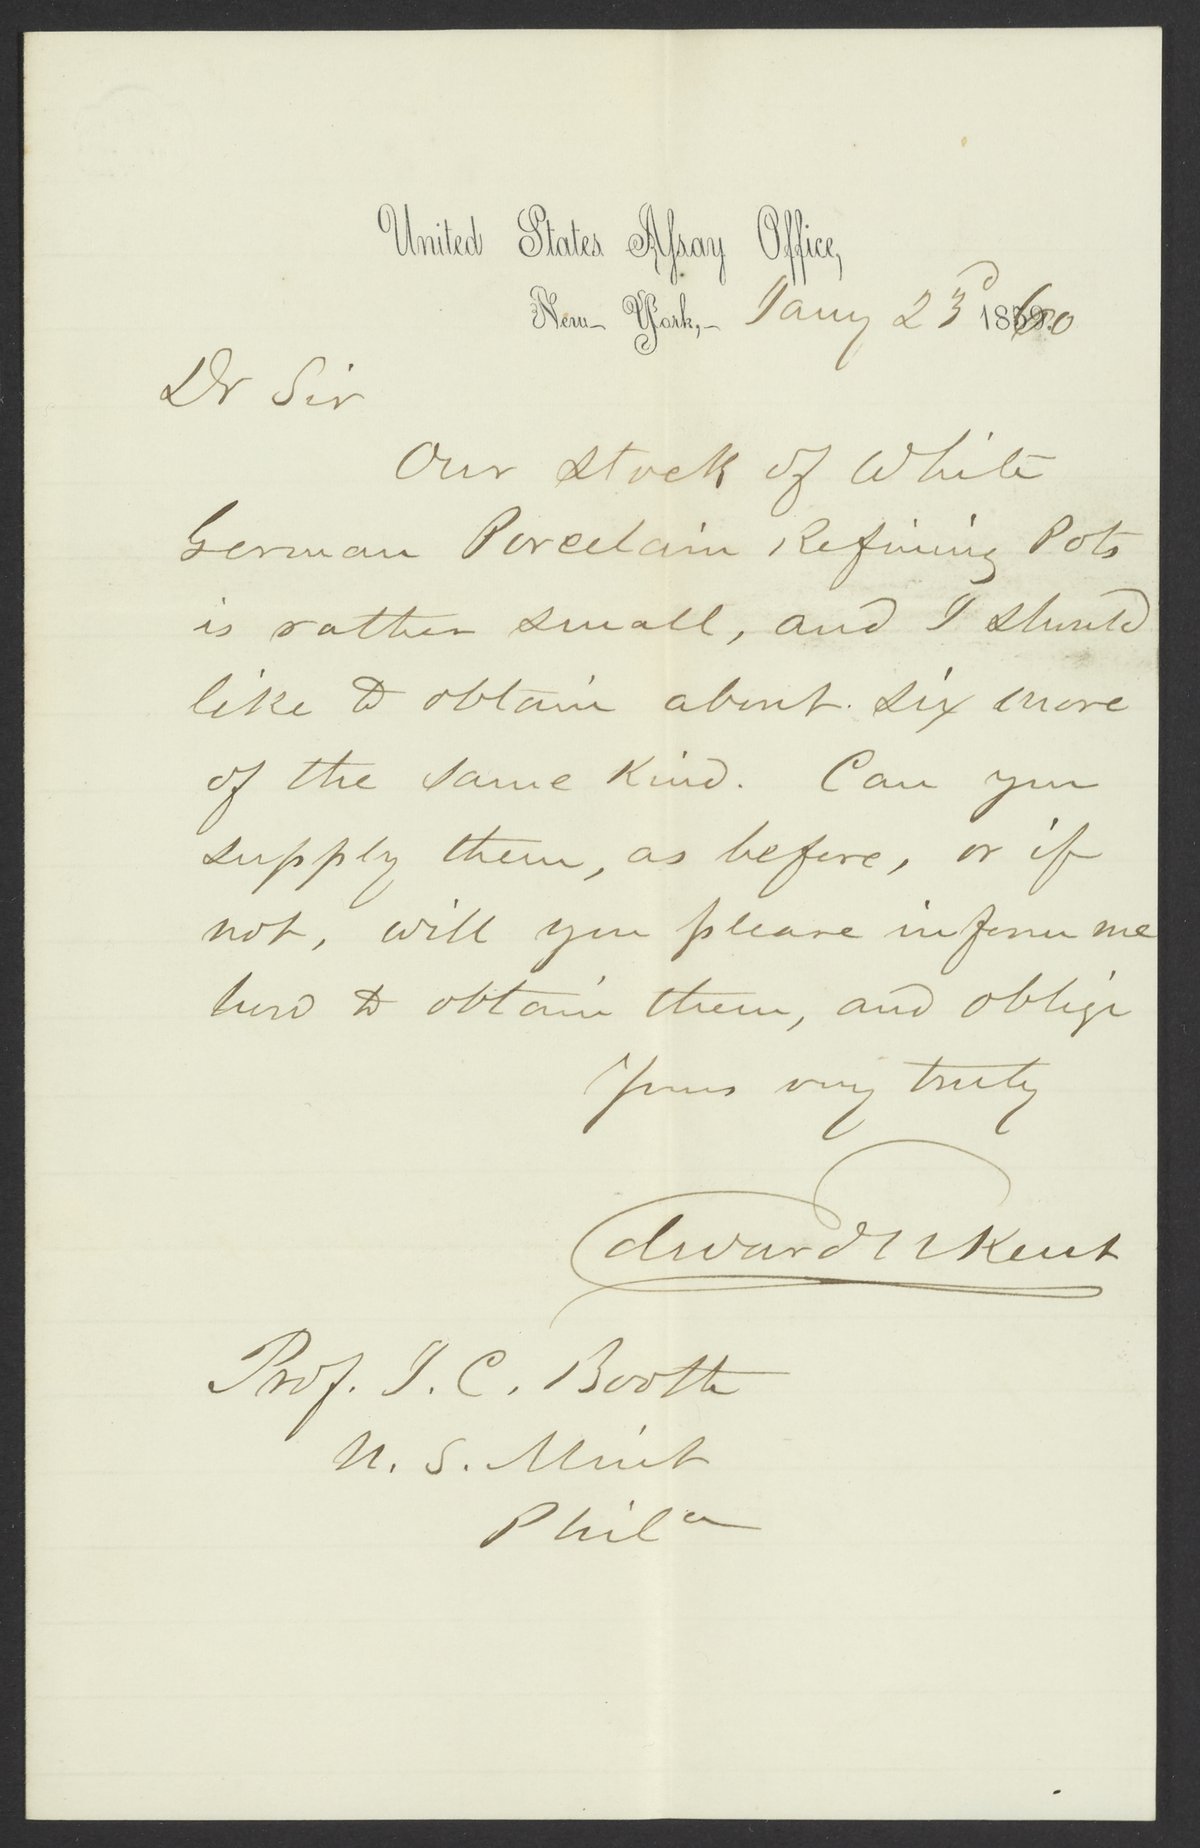 United States Assay Office,
New-York,- Jany 23d 1860
Dr Sir
Our stock of White
German Porcelain Refining Pots
is rather small, and I should
like to obtain about six more
of the same kind. Can you
supply them, as before, or if
not, will you please inform me
how to obtain them, and oblige
Yours very truly
Edward N Kent
Prof. J. C. Booth
U. S. Mint
Phila